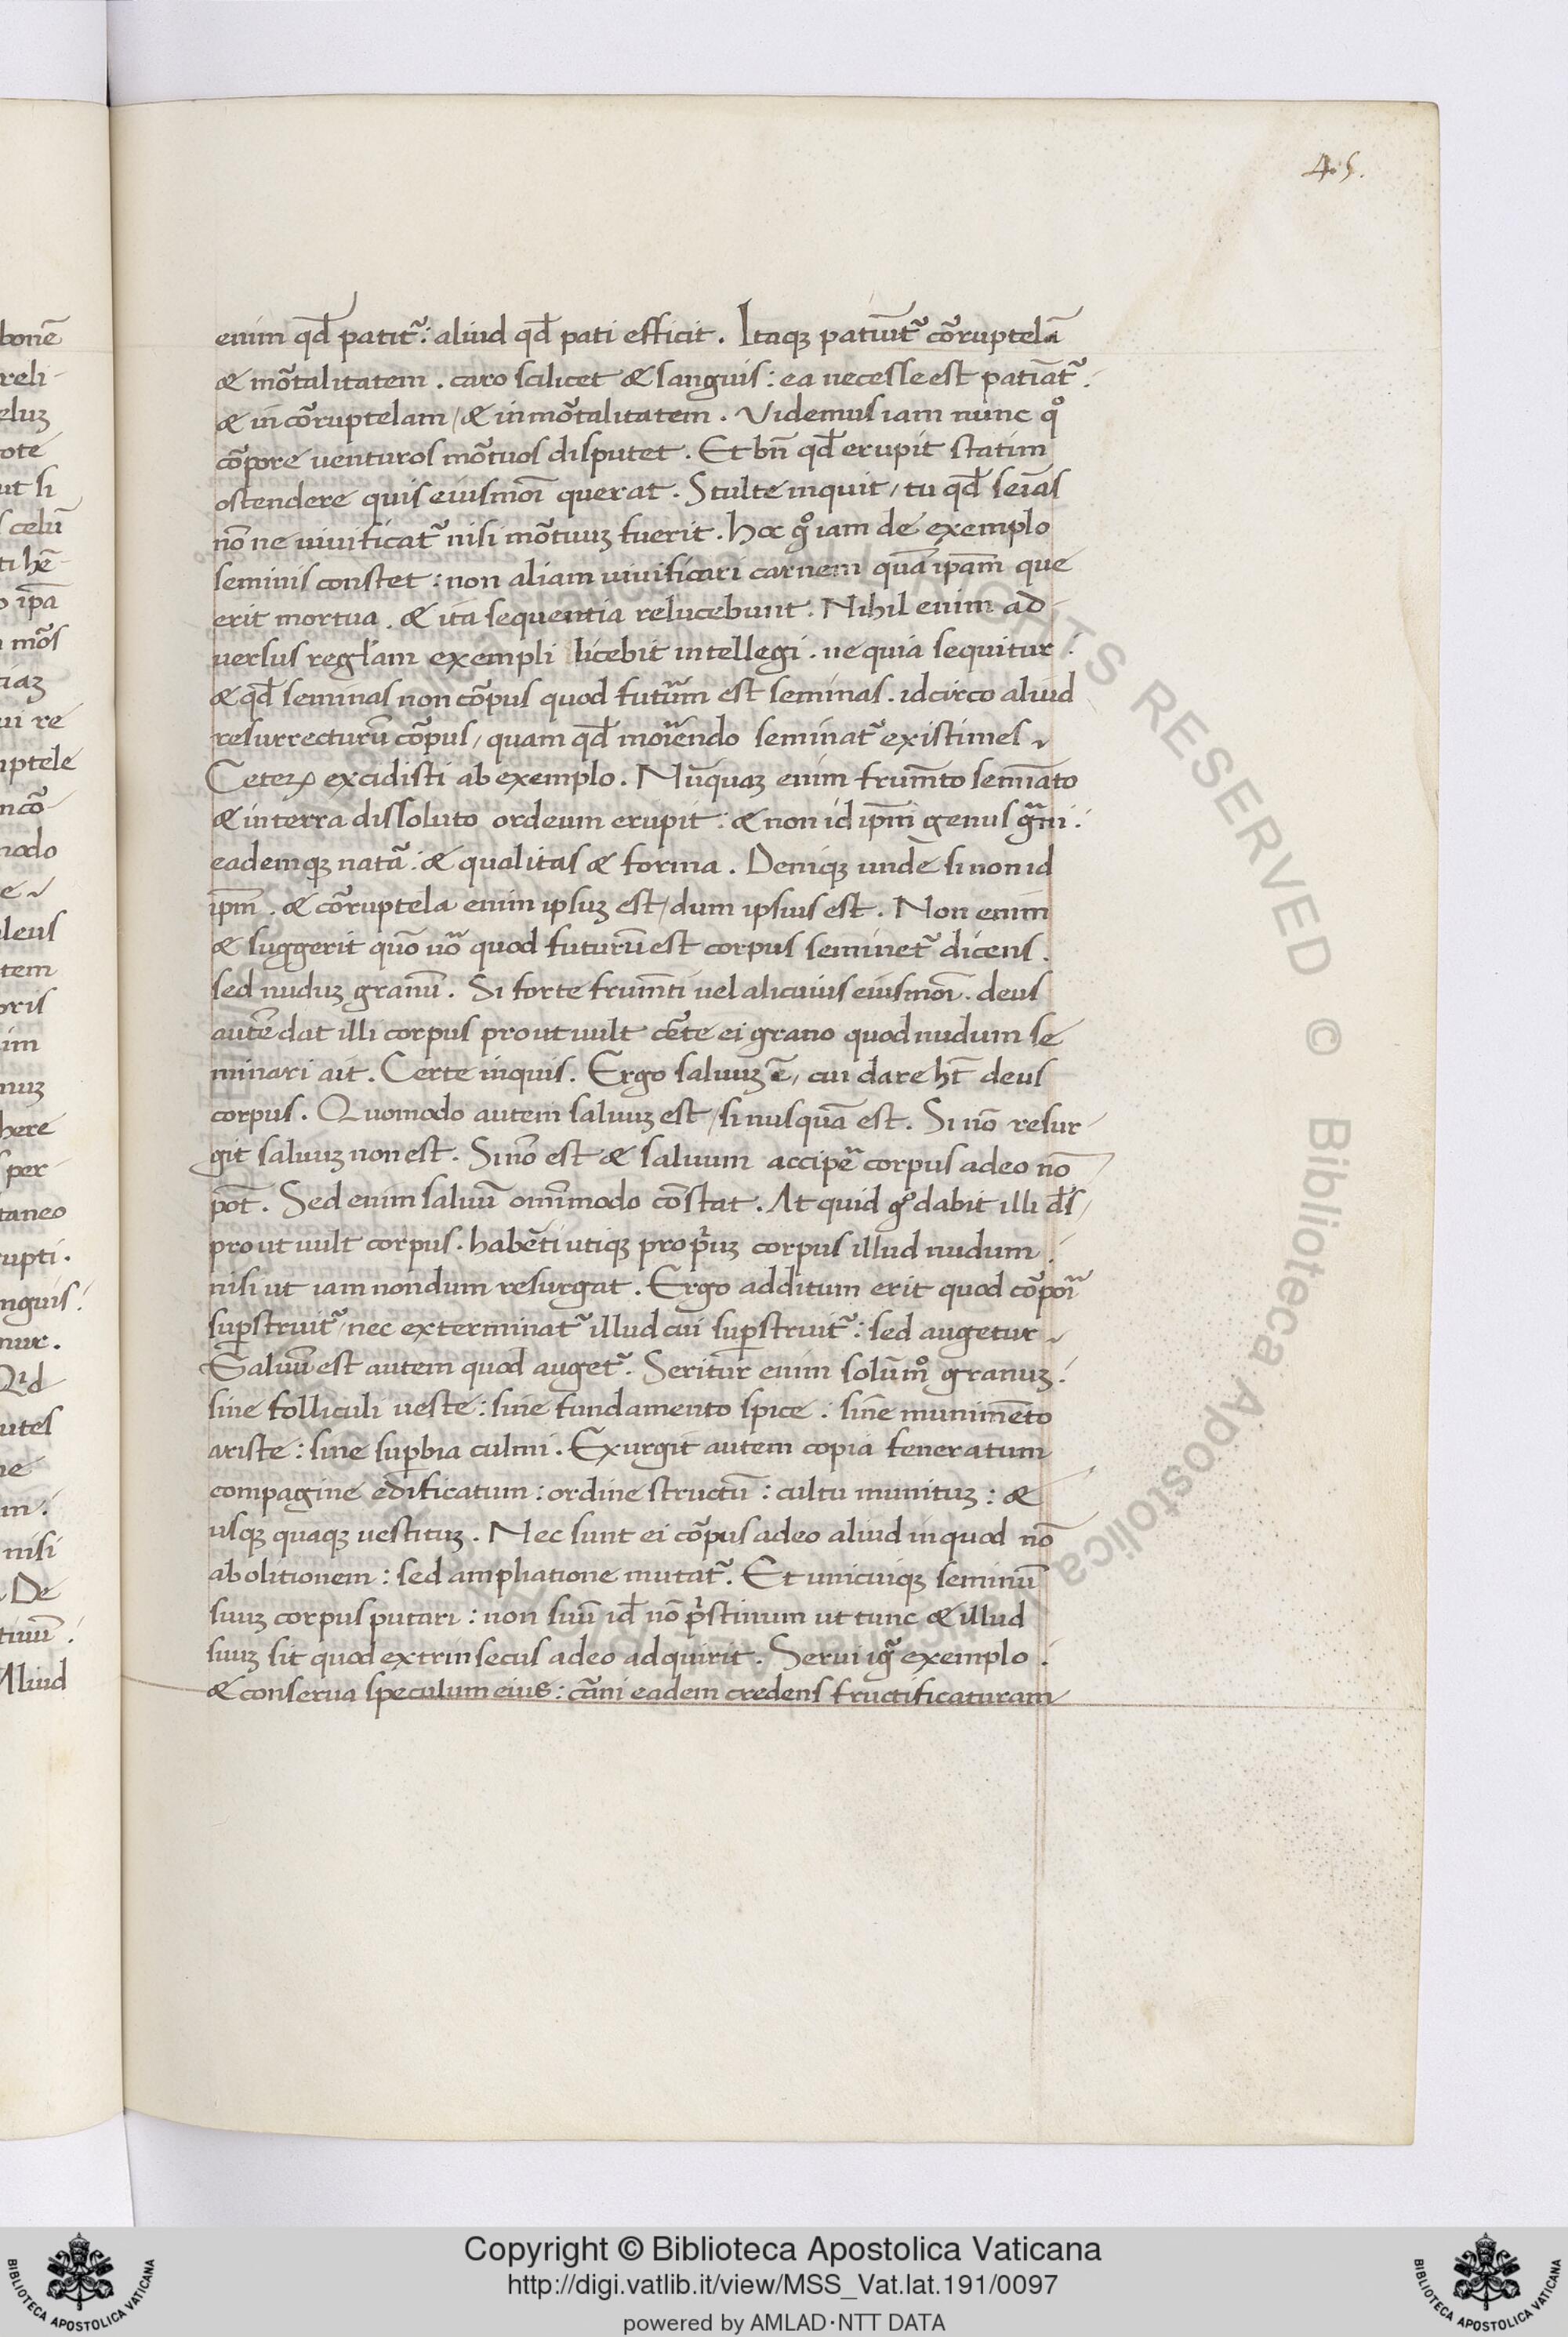 45.
enim qd̄ patit᷑: aliud qd̄ pati efficit. Itaqꝫ patiūt᷑ cōruptelā
& mōtalitatem. caro scilicet & sanguis: ea necesse est patiāt᷑:
& in cōruptelam / & inmōtalitatem. Videmus iam nunc qͦ
cōpore venturos mōtuos disputet. Et bn̄ qd̄ erupit statim
ostendere quis eiusmōi querat. Stulte inquit / tu qd̄ seīas
nōne uiuificat᷑ nisi mōtuuꝫ fuerit. hoc gͦ iam de exemplo
seminis constet: non aliam uiuificari carnem quā ip̄am que
erit mortua. & ita sequentia relucebunt. Nihil enim ad-
uersus regłam exempli licebit intellegi. ne quia sequitur:
& qd̄ seminas non cōpus quod futūm est seminas. idcirco aliud
resurrecturū cōpus / quam qd̄ moīendo seminat᷑ existimes ~
Ceteꝝ excidisti ab exemplo. Nūquaꝫ enim frumt̄o semiāto
& in terra dissoluto ordeum erupit: & non id ip̄m genus gͣni:
eademqꝫ natā: & qualitas & forma. Deniqꝫ unde si non id
ip̄m. & cōruptela enim ipsuꝫ est / dum ipsius est. Non enim
& suggerit quō uō quod futurū est corpus seminet᷑ dicens.
sed nuduꝫ granū. Si forte frumt̄i uel alicuius eiusmōi. deus
autē dat illi corpus prout uult cēte ei grano quod nudum se
minari ait. Certe inquis. Ergo saluuꝫ ē, cui dare ht̄ deus
corpus. Quomodo autem saluuꝫ est / si nusquā est. Si nō resur-
git saluuꝫ non est. Si nō est & saluum accipē corpus adeo nō
pōt. Sed enim saluū omīmodo cōstat. At quid gͦ dabit illi d̄s /
prout uult corpus. habēti utiqꝫ prop̄iuꝫ corpus illud nudum:
nisi ut iam non dum resurgat. Ergo additum erit quod cōpōi
suꝑstruit᷑ / nec exterminat᷑ illud cui suꝑstruit᷑: sed augetur ~
Saluū est autem quod auget᷑. Seritur enim solūmͦ granuꝫ:
sine folliculi ueste: sine fundamento spice: sine munimēto
ariste: sine suꝑbia culmi. Exurgit autem copia feneratum
compagine edificatum: ordine structū: cultu munituꝫ: &
usqꝫ quaqꝫ uestituꝫ. Nec sunt ei cōpus adeo aliud in quod nō
abolitionem: sed ampliatione mutat᷑. Et unicuiqꝫ seminū
suuꝫ corpus putari: non suū id̄ nō p̄stinum ut tunc & illud
suuꝫ sit quod extrinsecus adeo adquirit. Serui igͣ exemplo:
& conserua speculum eius: cāni eadem credens fructificaturam
bonē
reli-
eluꝫ
ote
ut si
s celū
ti hē-
o ip̄a
mōs
tiaꝫ
ui re
uptele
ncō-
modo
e ~
deus
tem
oris
im
nuꝫ
here
per-
taneo
rupti.
nguis:
mur.
Qd
utes
ne
m:
nisi
De
tiuū:
Aliud
ALL RIGHTS RESERVED © Biblioteca Apostolica Vaticana
Copyright © Biblioteca Apostolica Vaticana
http://digi.vatlib.it/view/MSS_Vat.lat.191/0097
powered by AMLAD·NTT DATA
BIBLIOTECA APOSTOLICA VATICANA
BIBLIOTECA APOSTOLICA VATICANA